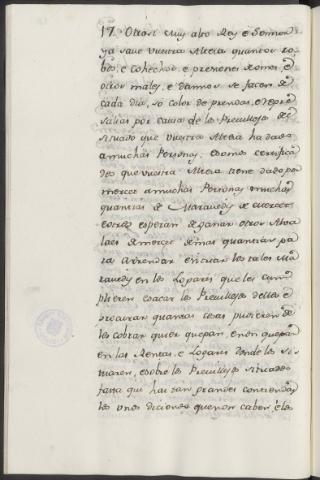 17. Otrosi Muy alto Rey e Señor
ya save vuestra Alteza quantos ro-
bos, e cohechos, e presiones e omes, e
otros males, e daños se facen de
cada dia, so color de prendas, e repre
salias por causa de los Previllejos de
Situado que vuestra Alteza ha dado
a muchas Personas, e somos certifica
dos que vuestra Alteza tiene dado por
merced a muchas Personas muchas
quantias de Maravedis de merced
e otros esperan de ganar otros Alva
laes de merced de mas quantias pa
ra arrendar en situar los tales Ma
ravedis en los Logares que les cum
plieren e sacar los Previllejos dellos e
procuran quantas cosas pudieren de
los cobrar quier quepan, e non quepan
en las Rentas, e Logares donde los si-
tuaren, e sobre los Previllejos situados
fasta que hai tan grandes contiendas
los unos diciendo que non caben e los